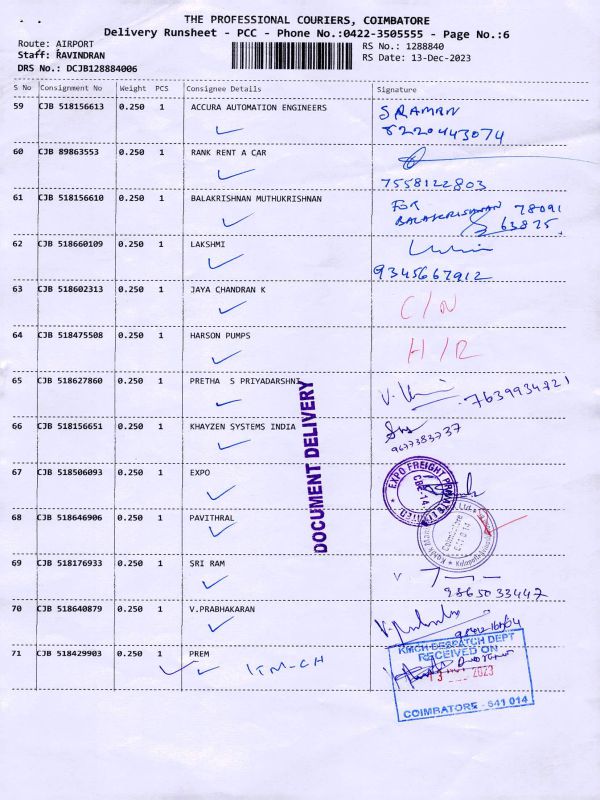 THE PROFESSIONAL COURIERS, COIMBATORE
Delivery Runsheet - PCC - Phone No.:0422-3505555 - Page No.:6
Route: AIRPORT RS No.: 1288840
Staff: RAVINDRAN RS Date: 13-Dec-2023
DRS No.: DCJB128884006
S No Consignment No Weight PCS Consignee Details Signature
59 CJB 518156613 0.250 1 ACCURA AUTOMATION ENGINEERS SRAMAN
8220443074
60 CJB 89863553 0.250 1 RANK RENT A CAR
7558122803
61 CJB 518156610 0.250 1 BALAKRISHNAN MUTHUKRISHNAN FOR 78091
BALAKRISHNAN 63825.
62 CJB 518660109 0.250 1 LAKSHMI
9345667912
63 CJB 518602313 0.250 1 JAYA CHANDRAN K C/N
64 CJB 518475508 0.250 1 HARSON PUMPS H/R
65 CJB 518627860 0.250 1 PRETHA S PRIYADARSHNI 7639934921
66 CJB 518156651 0.250 1 KHAYZEN SYSTEMS INDIA
9677383737
DOCUMENT DELIVERY
67 CJB 518506093 0.250 1 EXPO
EXPO FREIGHT PRIVATE LIMITED
CBE-14
68 CJB 518646906 0.250 1 PAVITHRAL
Coimbatore
641 014
69 CJB 518176933 0.250 1 SRI RAM
9865033447
70 CJB 518640879 0.250 1 V.PRABHAKARAN
71 CJB 518429903 0.250 1 PREM KM-CH
KMCH-DESPATCH DEPT
RECEIVED ON
13 DEC 2023
COIMBATORE - 641 014